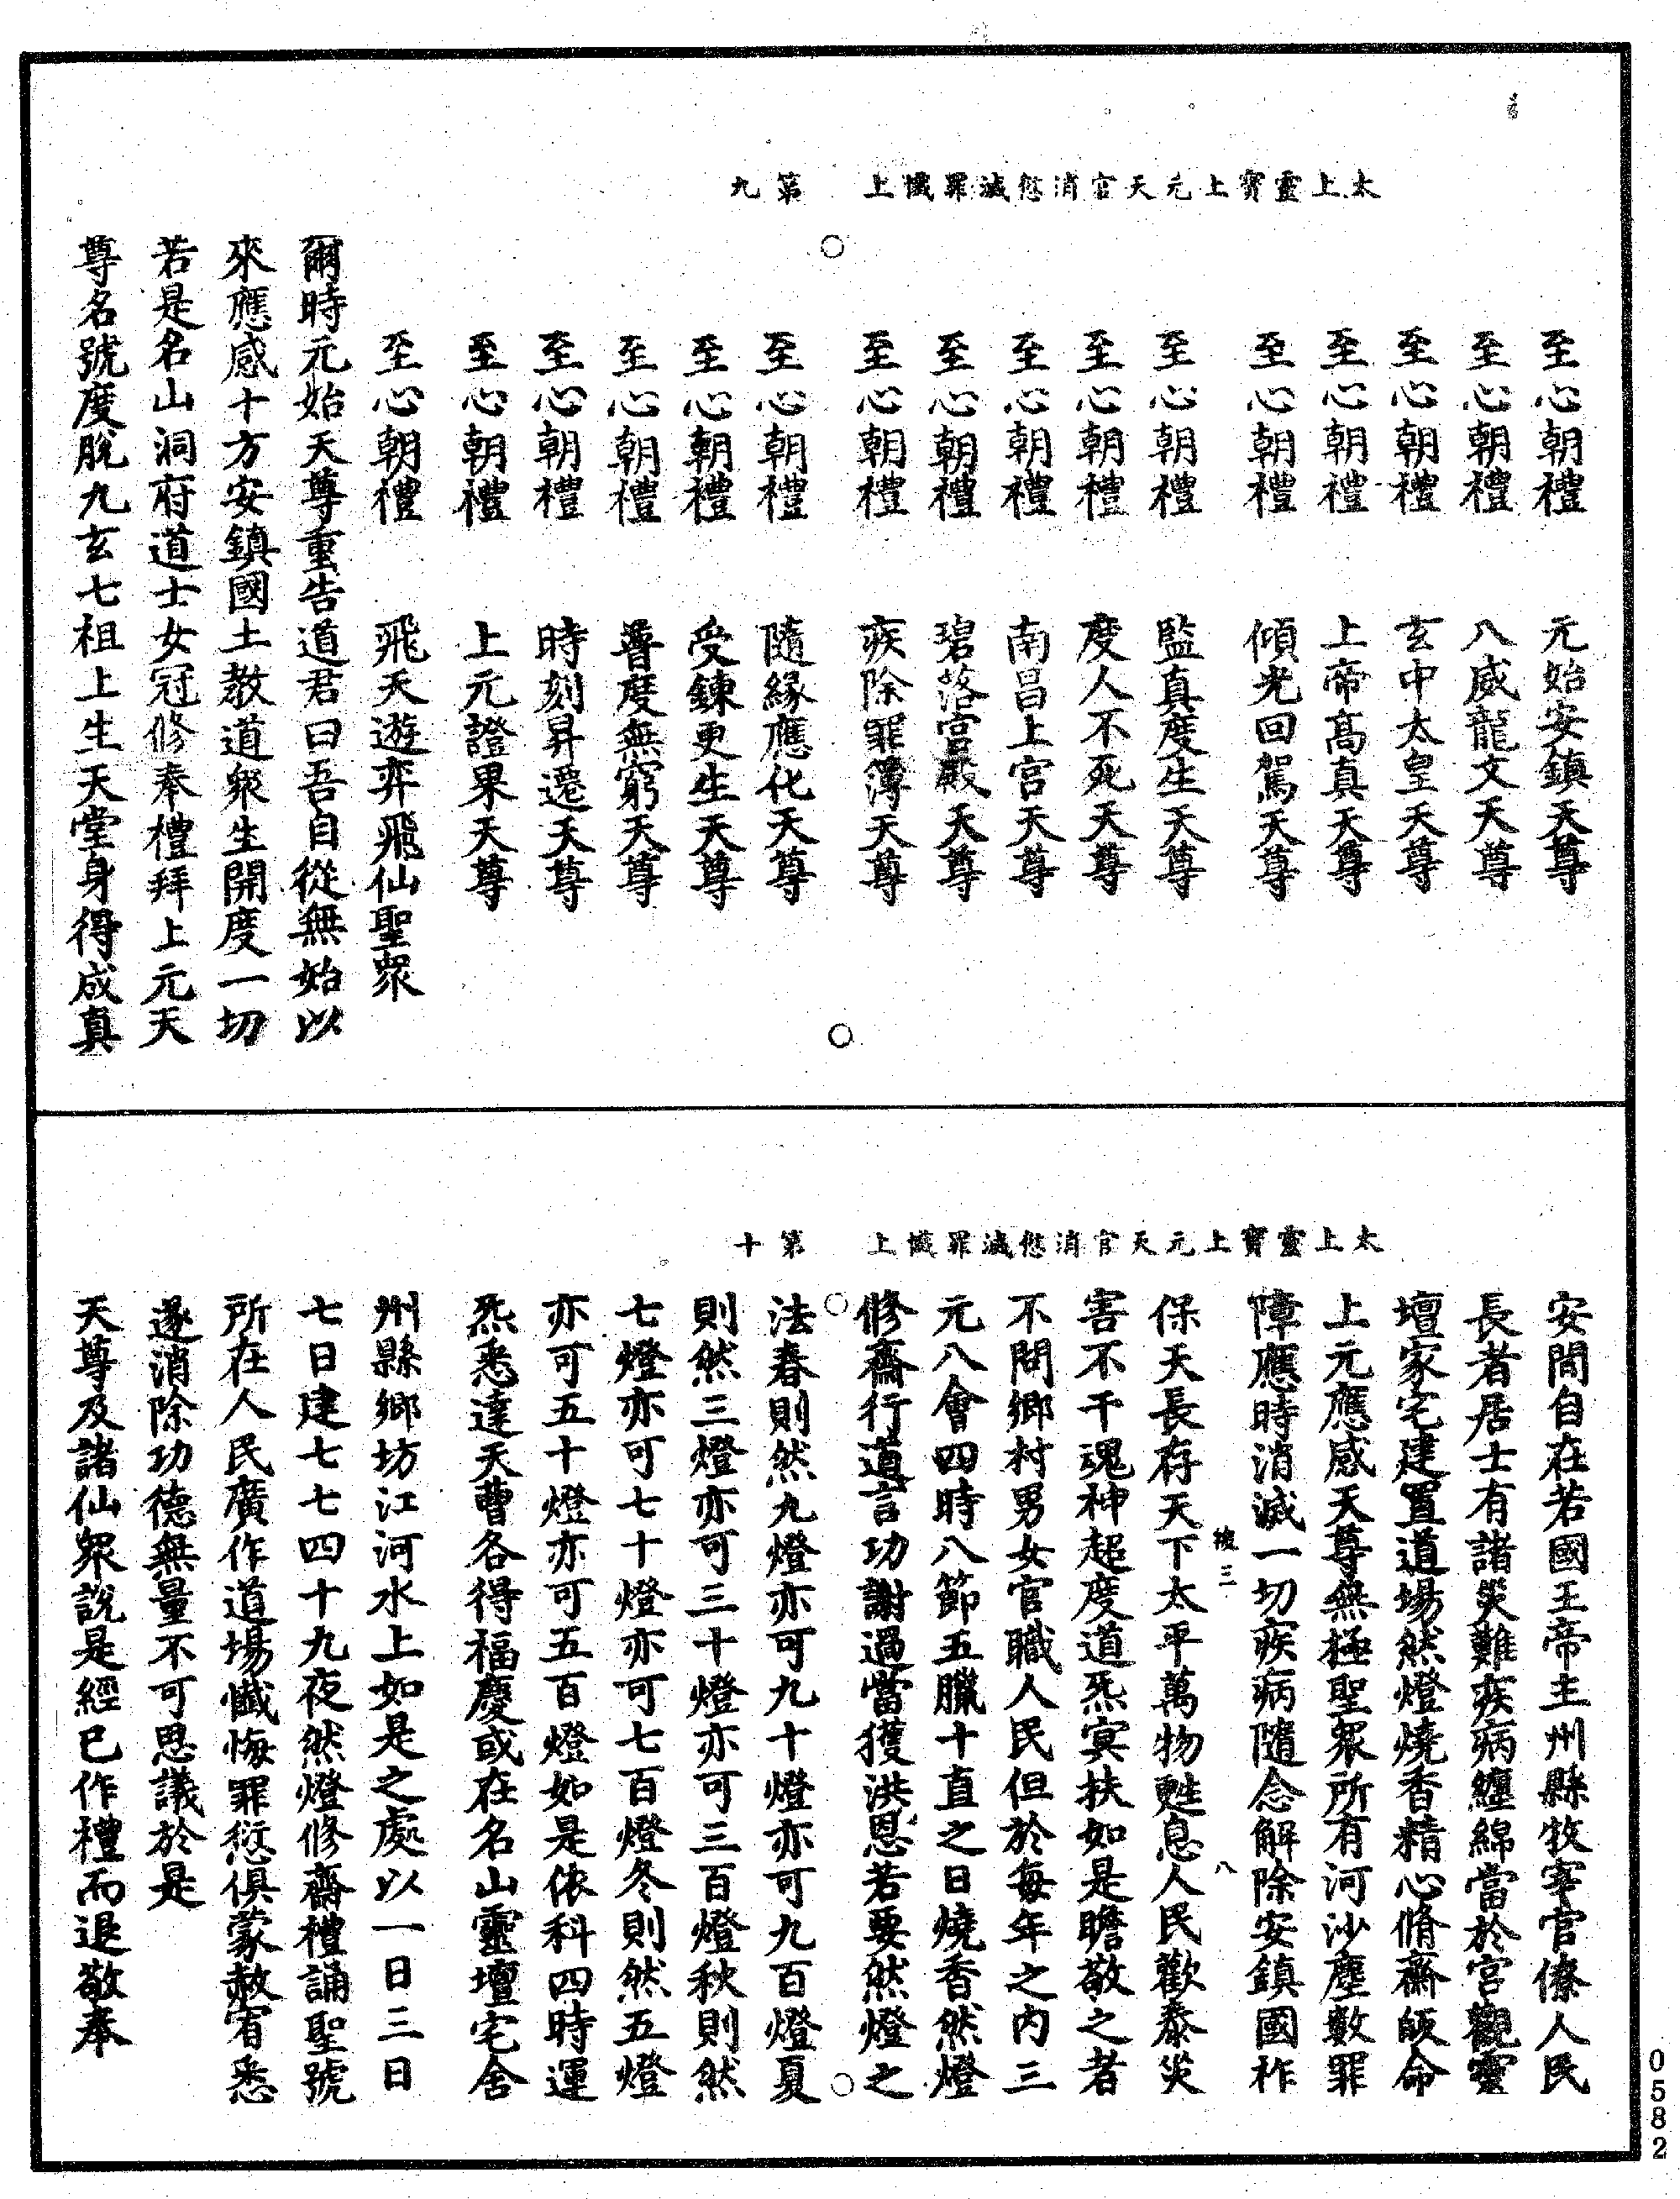 太上靈寶上元天官消愆滅罪懺上　第九
至心朝禮　元始安鎮天尊
至心朝禮　八威龍文天尊
至心朝禮　玄中太皇天尊
至心朝禮　上帝高真天尊
至心朝禮　傾光回駕天尊
至心朝禮　監真度生天尊
至心朝禮　度人不死天尊
至心朝禮　南昌上宮天尊
至心朝禮　碧落宮殿天尊
至心朝禮　疾除罪簿天尊
至心朝禮　隨緣應化天尊
至心朝禮　受鍊更生天尊
至心朝禮　普度無窮天尊
至心朝禮　時刻昇遷天尊
至心朝禮　上元證果天尊
至心朝禮　飛天遊弈飛仙聖眾
爾時元始天尊重告道君曰吾自從無始以
來應感十方安鎮國土教道眾生開度一切
若是名山洞府道士女冠修奉禮拜上元天
尊名號度脫九玄七祖上生天堂身得成真
太上靈寶上元天官消愆滅罪懺上　第十
安閒自在若國王帝主州縣牧宰官僚人民
長者居士有諸災難疾病纏綿當於宮觀靈
壇家宅建置道場然燈燒香精心脩齋皈命
上元應感天尊無極聖眾所有河沙塵數罪
障應時消滅一切疾病隨念解除安鎮國祚
三　八
保天長存天下太平萬物甦息人民歡泰災
害不干魂神超度道炁冥扶如是瞻敬之者
不問鄉村男女官職人民但於每年之內三
元八會四時八節五臘十直之日燒香然燈
修齋行道言功謝過當獲洪恩若要然燈之
法春則然九燈亦可九十燈亦可九百燈夏
則然三燈亦可三十燈亦可三百燈秋則然
七燈亦可七十燈亦可七百燈冬則然五燈
亦可五十燈亦可五百燈如是依科四時運
炁悉達天曹各得福慶或在名山靈壇宅舍
州縣鄉坊江河水上如是之處以一日三日
七日建七七四十九夜然燈修齋禮誦聖號
所在人民廣作道場懺悔罪愆俱蒙赦宥悉
遂消除功德無量不可思議於是
天尊及諸仙眾說是經已作禮而退敬奉
0582